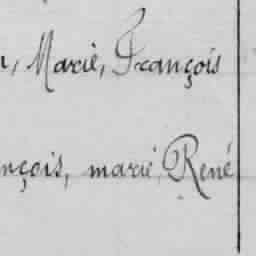 , Marie, François
nçois, marie, René